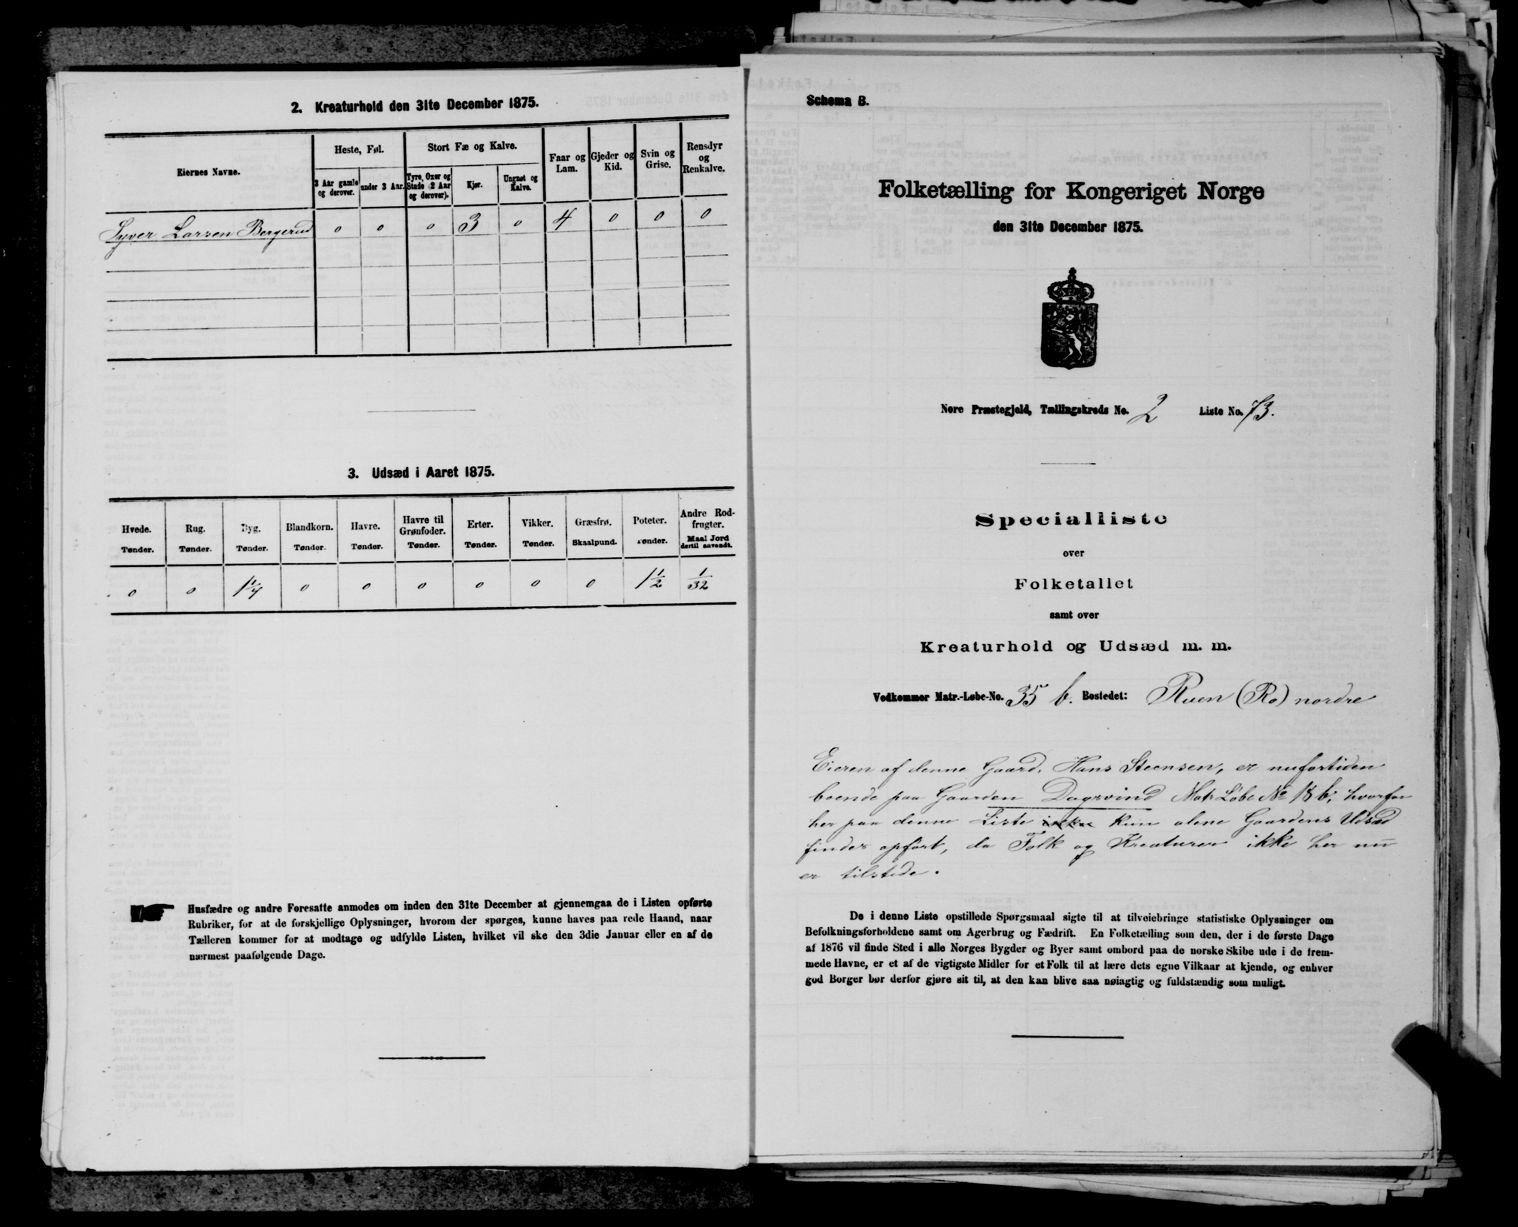 2. Kreaturhold den 31te December 1875.
Eiernes Navne.
Heste, Føl.
Stort Fæ og Kalve.
Faar og Lam.
Gjeder og Kid.
Svin og Grise.
Rensdyr og Renkalve.
3 Aar gamle og derover.
under 3 Aar.
Tyre, Oxer og Stude (2 Aar og derover).
Kjør.
Ungnøt og Kalve.
Syver Larsen Bergerud 0 0 0 3 0 4 0 0 0
3. Udsæd i Aaret 1875.
Hvede. Rug. Byg. Blandkorn. Havre. Havre til Grønfoder. Erter. Vikker. Græsfrø. Poteter. Andre Rodfrugter.
Tønder. Tønder. Tønder. Tønder. Tønder. Tønder. Tønder. Tønder. Skaalpund. Tønder. Maal Jord dertil anvendt.
0 0 1 1/4 0 0 0 0 0 0 1 1/2 1/32
Husfædre og andre Foresatte anmodes om inden den 31te December at gjennemgaa de i Listen opførte
Rubriker, for at de forskjellige Oplysninger, hvorom der spørges, kunne haves paa rede Haand, naar
Tælleren kommer for at modtage og udfylde Listen, hvilket vil ske den 3die Januar eller en af de
nærmest paafølgende Dage.
Schema B.
Folketælling for Kongeriget Norge
den 31te December 1875.
Nore Præstegjeld, Tællingskreds No. 2 Liste No. 73.
Specialliste
over
Folketallet
samt over
Kreaturhold og Udsæd m. m.
Vedkommer Matr.-Løbe-No. 35 b. Bostedet: Ruen (Ro) nordre
Eieren af denne Gaard, Hans Steensen, er nufortiden
boende paa Gaarden Dagsvind Matr Løbe No 18 b; hvorfor
her paa denne Liste ikke kun alene Gaardens Udsæd
findes opført, da Folk og Kreaturer ikke her nu
er tilstede.
De i denne Liste opstillede Spørgsmaal sigte til at tilveiebringe statistiske Oplysninger om
Befolkningsforholdene samt om Agerbrug og Fædrift. En Folketælling som den, der i de første Dage
af 1876 vil finde Sted i alle Norges Bygder og Byer samt ombord paa de norske Skibe ude i de frem-
mede Havne, er et af de vigtigste Midler for et Folk til at lære dets egne Vilkaar at kjende, og enhver
god Borger bør derfor gjøre sit til, at den kan blive saa nøiagtig og fuldstændig som muligt.